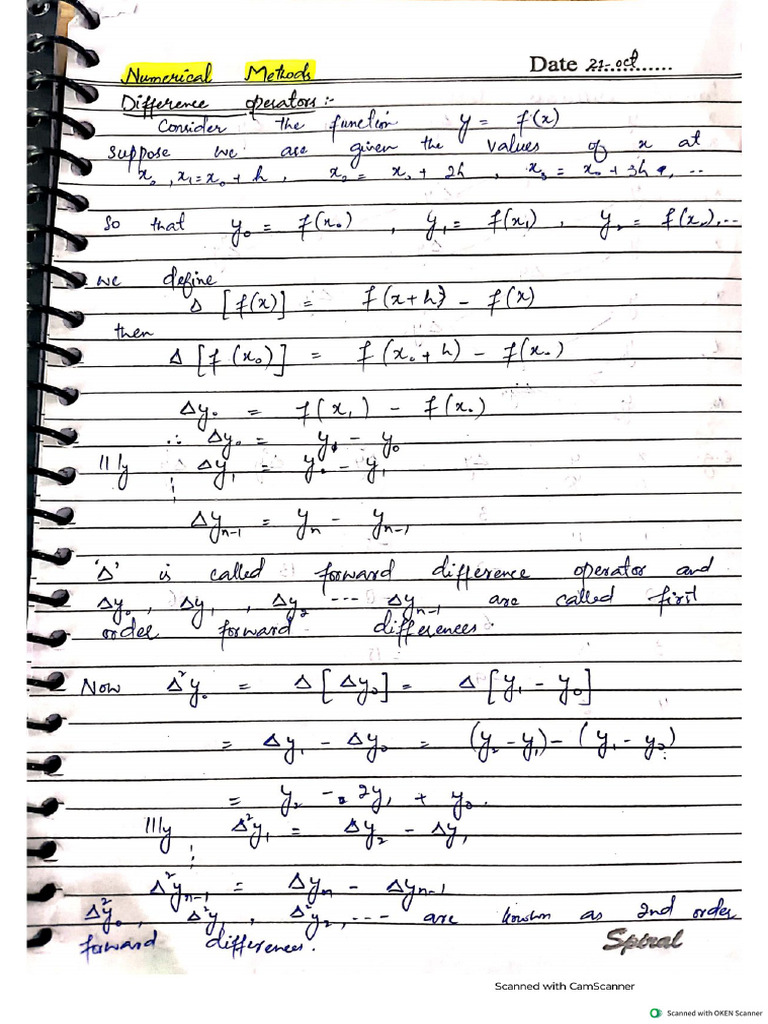 Date 21-oct
Numerical Methods
Difference operators:-
Consider the function y = f(x)
suppose we are given the values of x at
x₀, x₁ = x₀ + h, x₂ = x₀ + 2h, x₃ = x₀ + 3h, ...
So that y₀ = f(x₀), y₁ = f(x₁), y₂ = f(x₂), ...
we define
Δ [f(x)] = f(x+h) - f(x)
then
Δ [f(x₀)] = f(x₀+h) - f(x₀)
Δy₀ = f(x₁) - f(x₀)
∴ Δy₀ = y₁ - y₀
llly Δy₁ = y₂ - y₁
⋮
Δyₙ₋₁ = yₙ - yₙ₋₁
'Δ' is called forward difference operator and
Δy₀, Δy₁, Δy₂ --- Δyₙ₋₁ are called first
order forward differences.
Now Δ²y₀ = Δ[Δy₀] = Δ[y₁ - y₀]
= Δy₁ - Δy₀ = (y₂ - y₁) - (y₁ - y₀)
= y₂ - 2y₁ + y₀.
llly Δ²y₁ = Δy₂ - Δy₁
⋮
Δ²yₙ₋₁ = Δyₙ - Δyₙ₋₁
Δ²y₀, Δ²y₁, Δ²y₂, --- are known as 2nd order
forward differences.
Spiral
Scanned with CamScanner
Scanned with OKEN Scanner